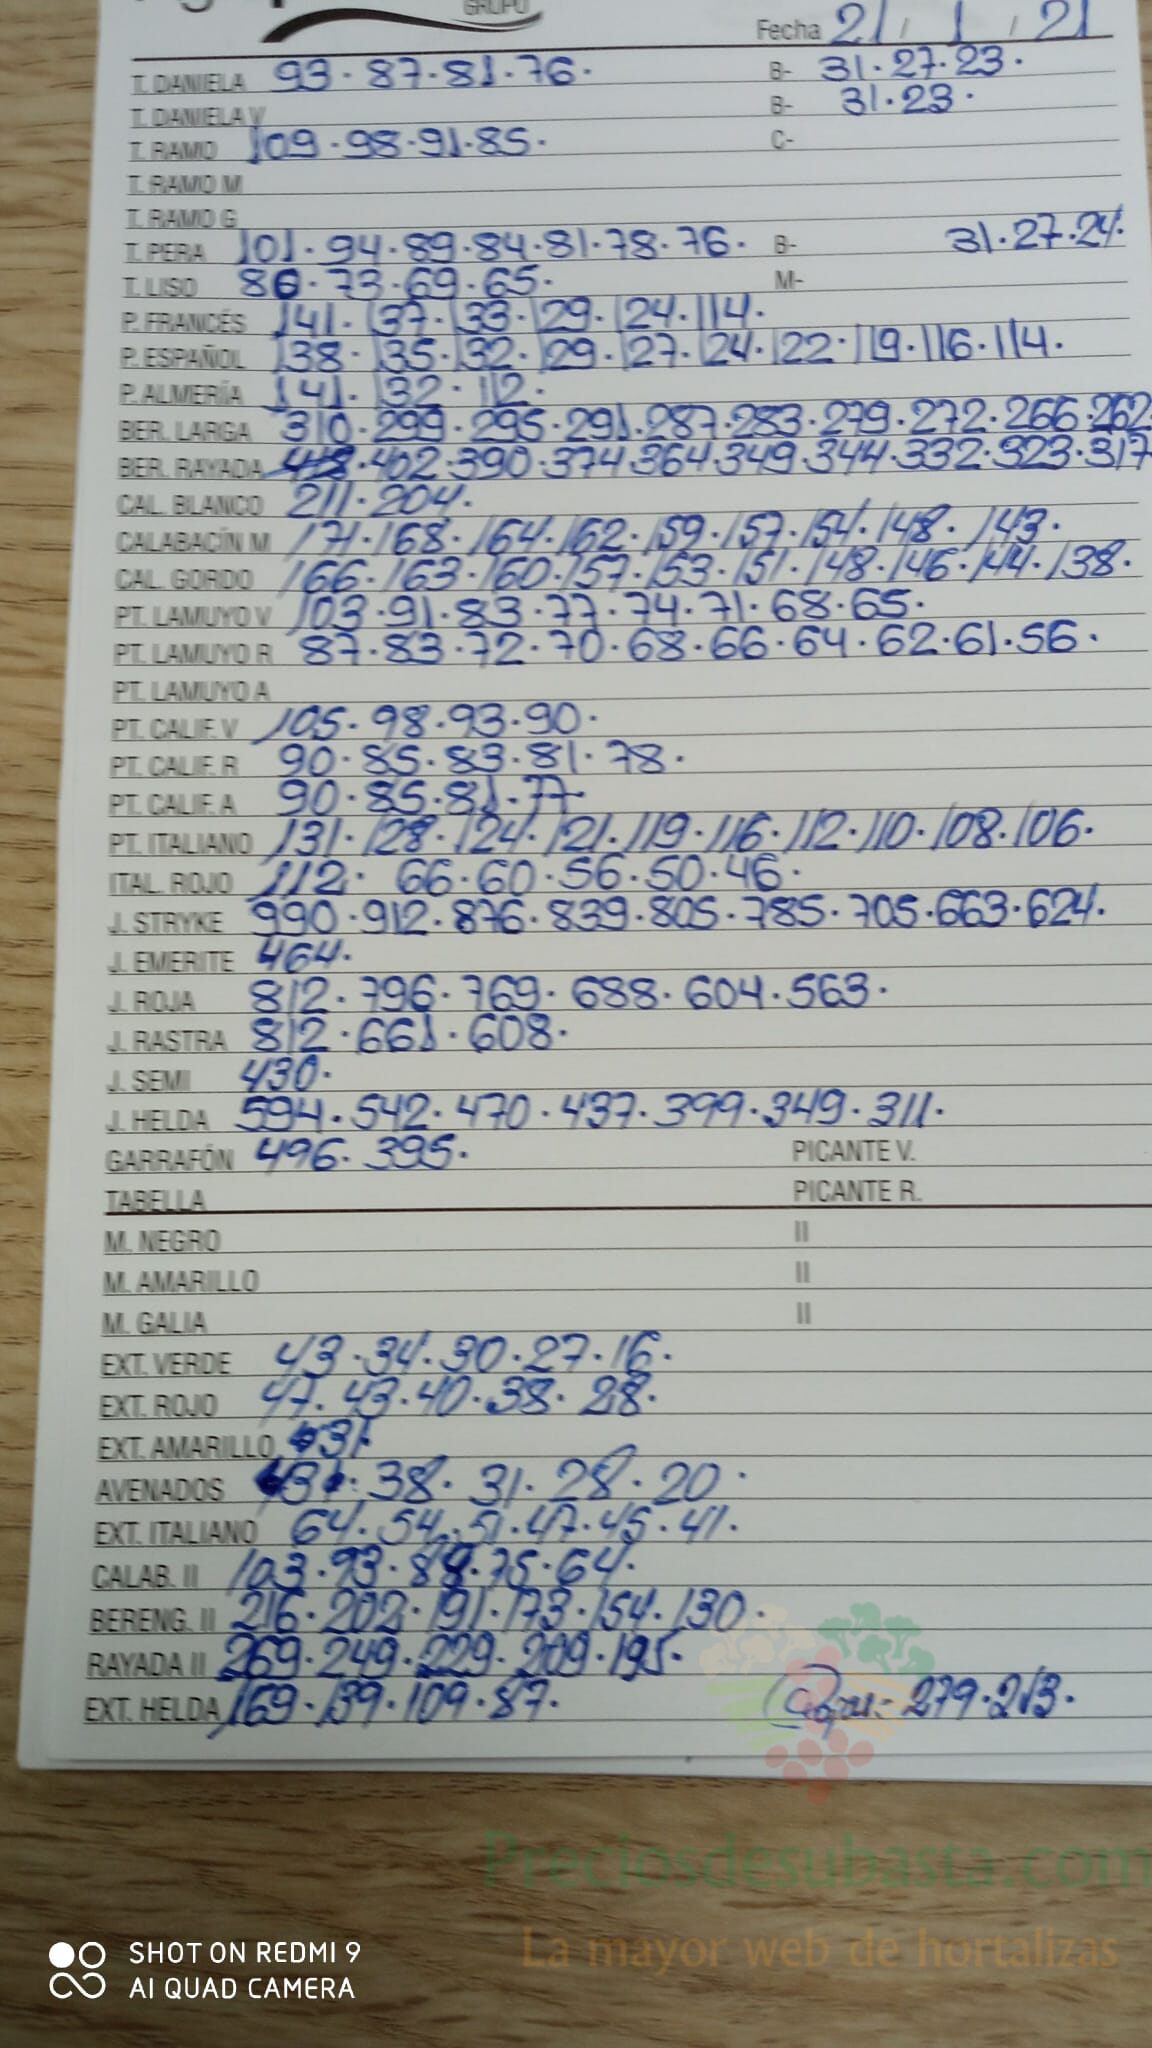 GRUPO
Fecha 21 / 1 / 21
T. DANIELA 93·87·81·76· B- 31·27·23·
T. DANIELA V B- 31·23·
T. RAMO 109·98·91·85· C-
T. RAMO M
T. RAMO G
T. PERA 101·94·89·84·81·78·76· B- 31·27·24·
T. LISO 86·73·69·65· M-
P. FRANCÉS 141·137·133·129·124·114·
P. ESPAÑOL 138·135·132·129·127·124·122·119·116·114·
P. ALMERÍA 141·132·112·
BER. LARGA 310·299·295·291·287·283·279·272·266·262
BER. RAYADA 402·390·374·364·349·344·332·323·317
CAL. BLANCO 211·204·
CALABACÍN M 171·168·164·162·159·157·154·148·143·
CAL. GORDO 166·163·160·157·153·151·148·146·144·138·
PT. LAMUYO V 103·91·83·77·74·71·68·65·
PT. LAMUYO R 87·83·72·70·68·66·64·62·61·56·
PT. LAMUYO A
PT. CALIF. V 105·98·93·90·
PT. CALIF. R 90·85·83·81·78·
PT. CALIF. A 90·85·81·77
PT. ITALIANO 131·128·124·121·119·116·112·110·108·106·
ITAL. ROJO 112· 66·60·56·50·46·
J. STRYKE 990·912·876·839·805·785·705·663·624·
J. EMERITE 464·
J. ROJA 812·796·769·688·604·563·
J. RASTRA 812·661·608·
J. SEMI 430·
J. HELDA 594·542·470·437·399·349·311·
GARRAFÓN 496·395· PICANTE V.
TABELLA PICANTE R.
M. NEGRO II
M. AMARILLO II
M. GALIA II
EXT. VERDE 43·34·30·27·16·
EXT. ROJO 47·43·40·38·28·
EXT. AMARILLO
AVENADOS 38·31·28·20·
EXT. ITALIANO 64·54·51·47·45·41·
CALAB. II 103·93·75·64·
BERENG. II 216·202·191·173·154·130·
RAYADA II 269·249·229·209·195·
EXT. HELDA 169·139·109·87· 279·213·
Preciosdesubasta.com
La mayor web de hortalizas
SHOT ON REDMI 9
AI QUAD CAMERA